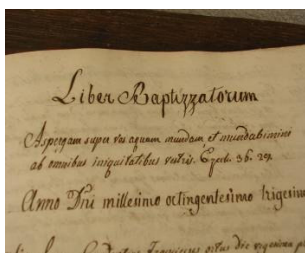 Liber Baptizzatorum
Aspergam super vos aquam mundam et mundabimini
ab omnibus iniquitatibus vestris. Ezech. 36. 29.
Anno Dñi millesimo octingentesimo trigesimo
Franciscus ortus die